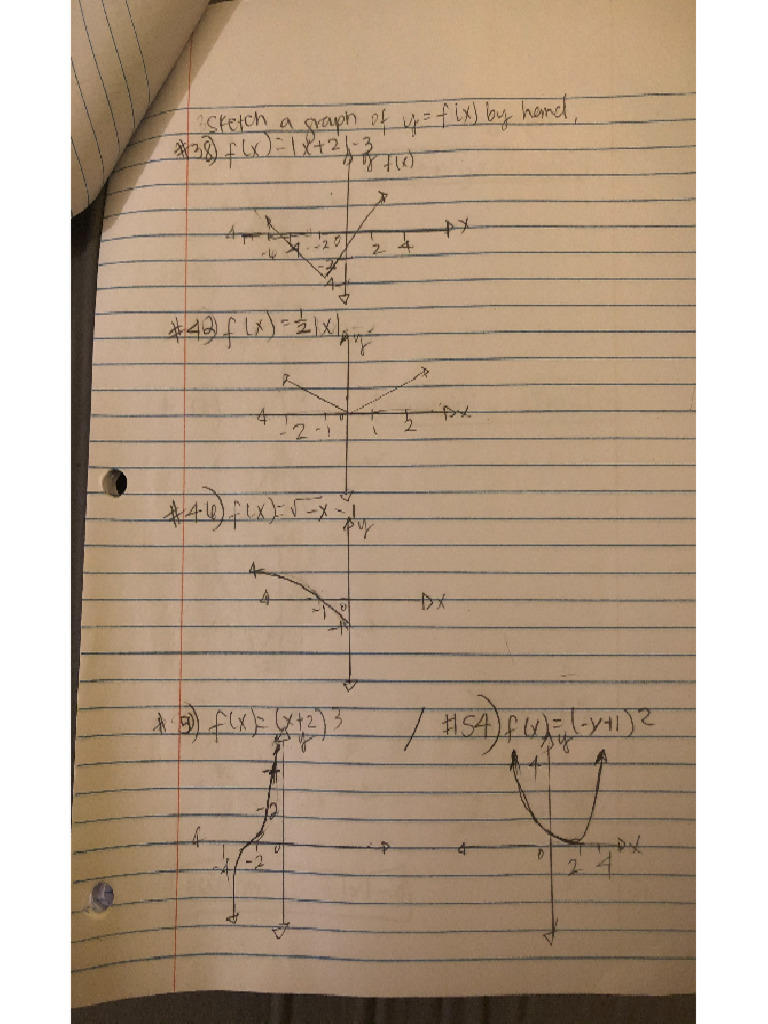 Sketch a graph of y = f(x) by hand.
#38) f(x) = |x+2|-3
y f(x)
x
-6 -4 -2 0 2 4
-2
-4
#42) f(x) = 1/2|x|
y
x
-2 -1 0 1 2
#46) f(x) = √-x - 1
y
x
-1 0
-1
f(x) = (x+2)3 / #54) f(x) = (-x+1)2
y y
4 4
2
-4 -2 0 0 2 4 x